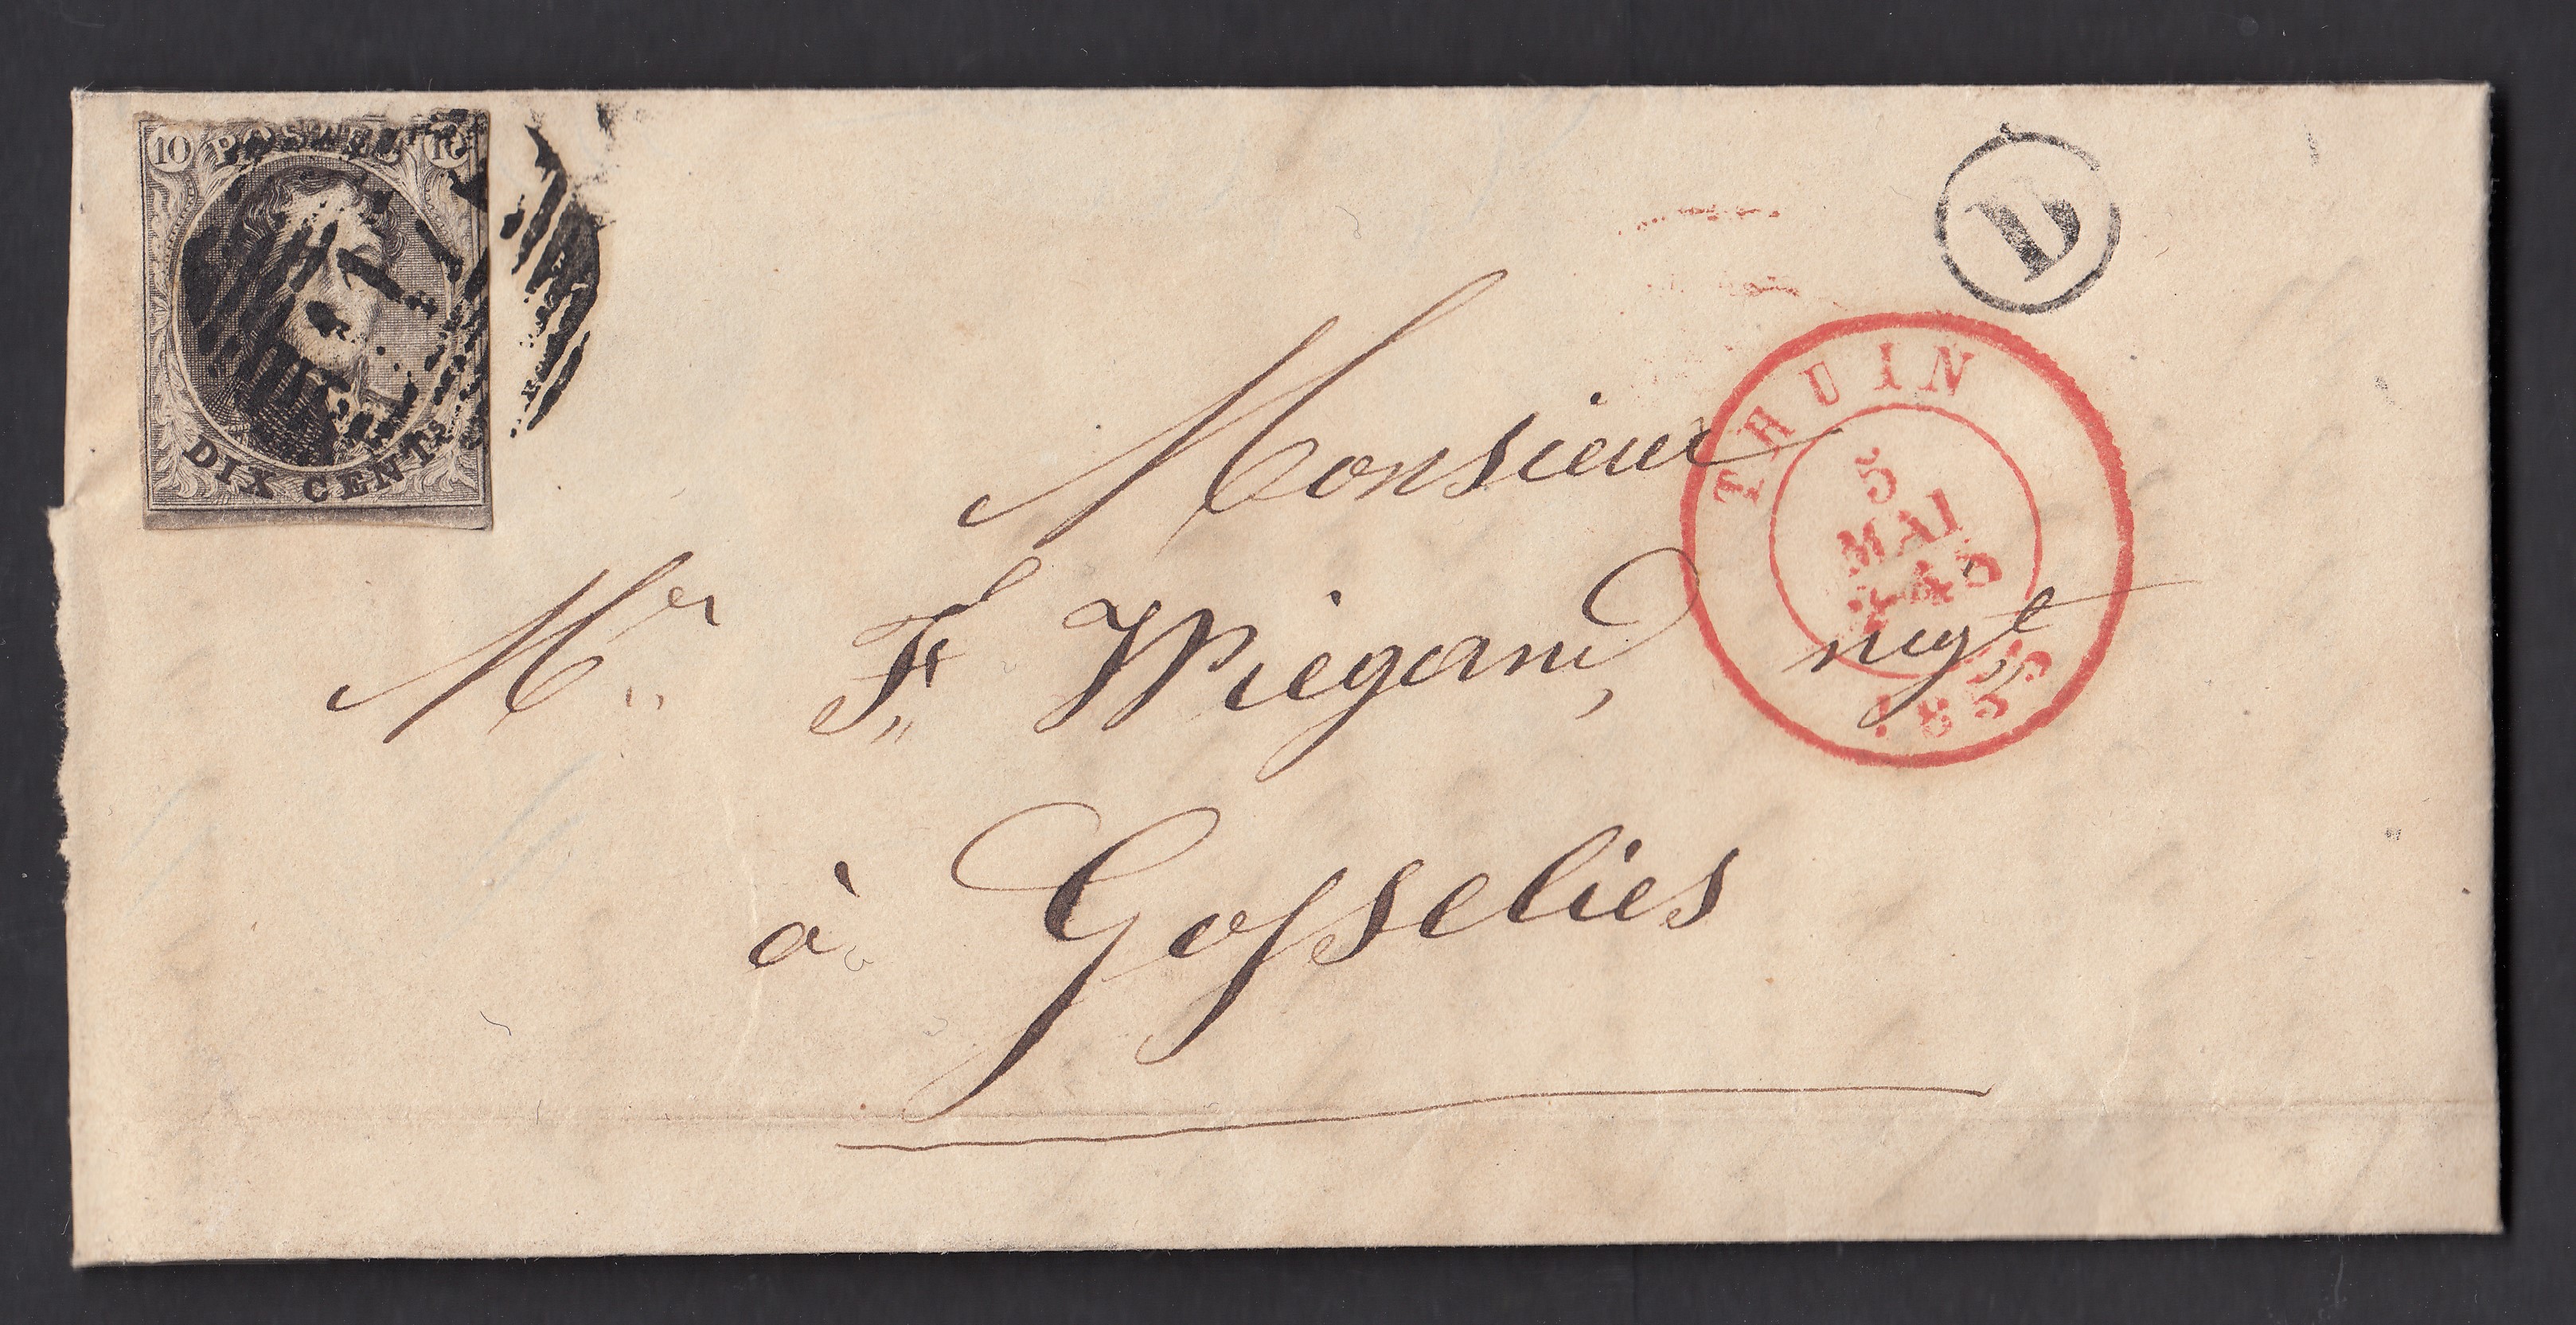 10 POSTES 10
DIX CENTS
D
THUIN
5
MAI
Monsieur
Mr. F. Wiegand, negt
à Gosselies